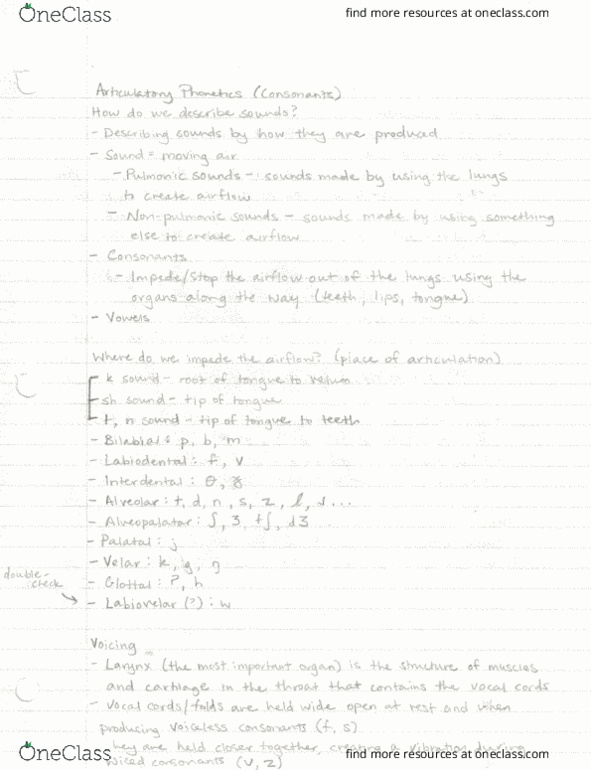 OneClass
find more resources at oneclass.com
Articulatory Phonetics (Consonants)
How do we describe sounds?
- Describing sounds by how they are produced
- Sound = moving air
- Pulmonic sounds - sounds made by using the lungs
to create airflow
- Non-pulmonic sounds - sounds made by using something
else to create airflow
- Consonants
- Impede/Stop the airflow out of the lungs using the
organs along the way (teeth, lips, tongue)
- Vowels
Where do we impede the airflow? (place of articulation)
- k sound - root of tongue to velum
- sh sound - tip of tongue
- t, n sound - tip of tongue to teeth
- Bilabial: p, b, m
- Labiodental: f, v
- Interdental: θ,
- Alveolar: t, d, n, s, z, l, ɹ...
- Alveopalatar: ʃ, ʒ, tʃ, dʒ
- Palatal: j
- Velar: k, g, ŋ
double-check
- Glottal: ʔ, h
- Labiovelar (?): w
Voicing
- Larynx (the most important organ) is the structure of muscles
and cartilage in the throat that contains the vocal cords
- Vocal cords/folds are held wide open at rest and when
producing voiceless consonants (f, s)
they are held closer together, creating a vibration during
voiced consonants (v, z)
OneClass
find more resources at oneclass.com